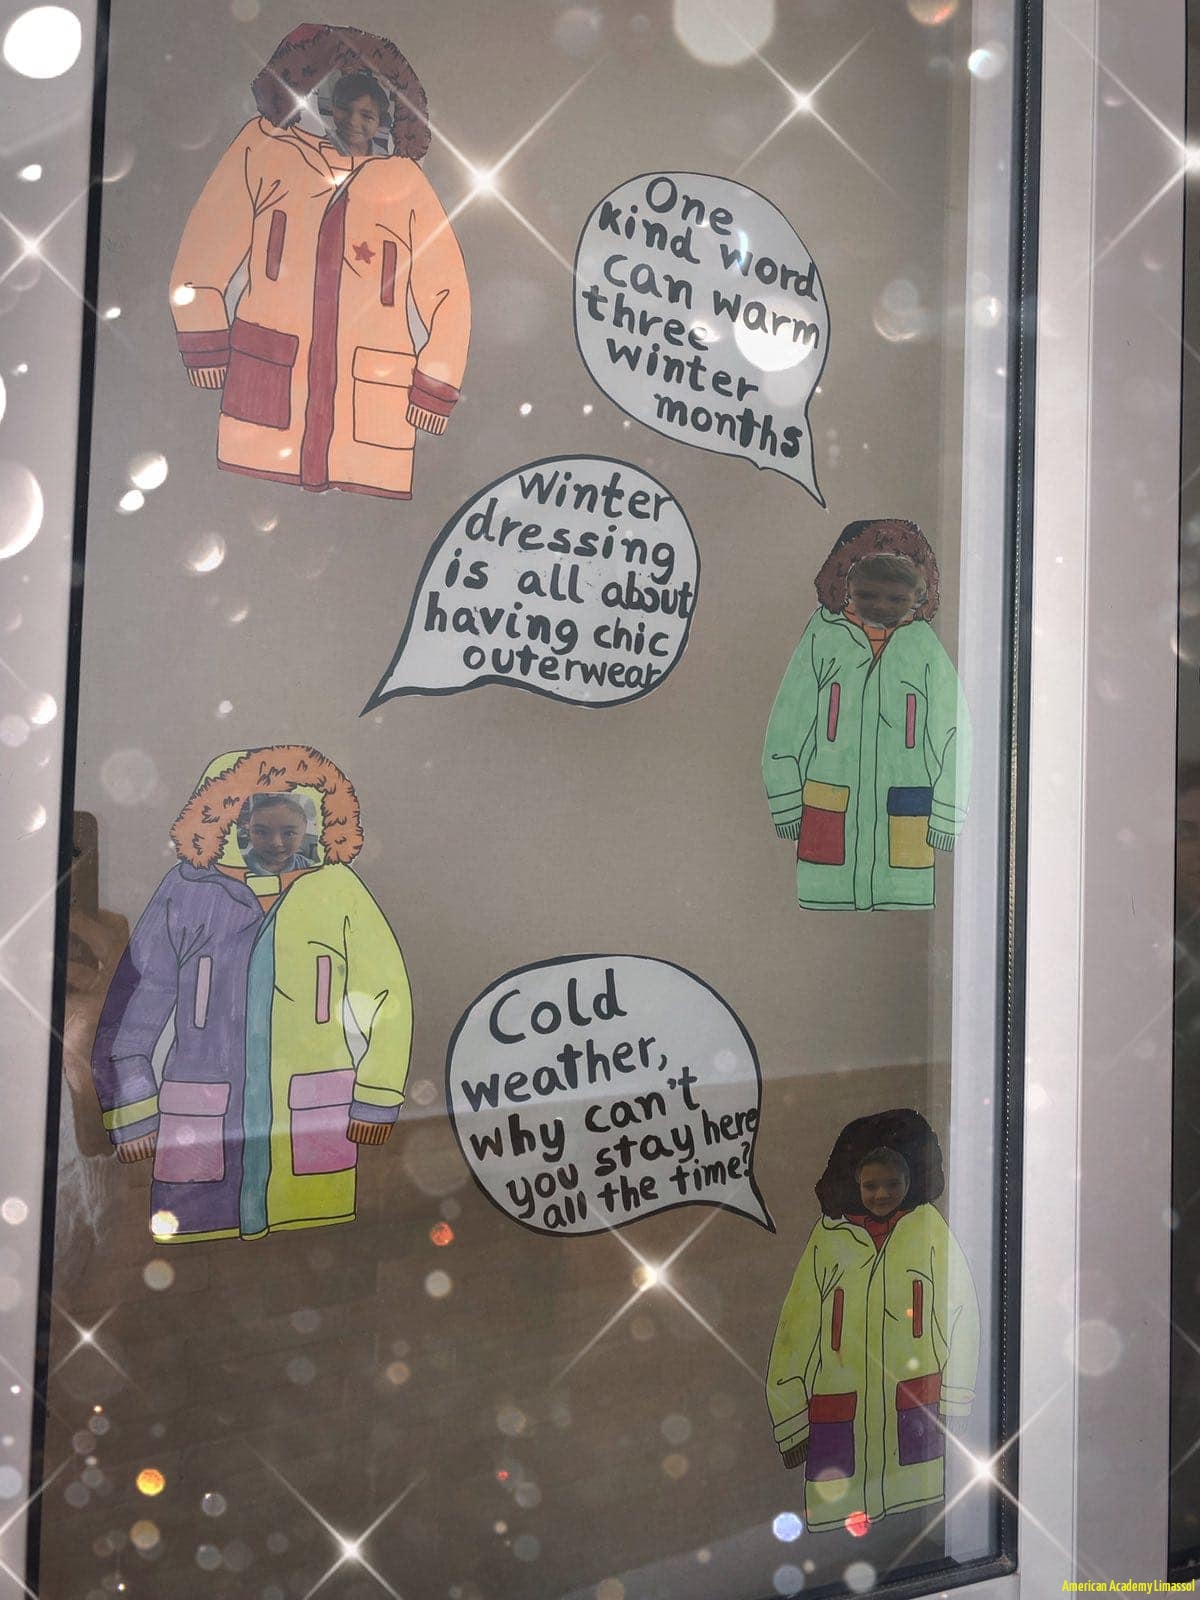 One
kind word
can warm
three
winter
months
Winter
dressing
is all about
having chic
outerwear
Cold
weather,
why can't
you stay here
all the time?
American Academy Limassol